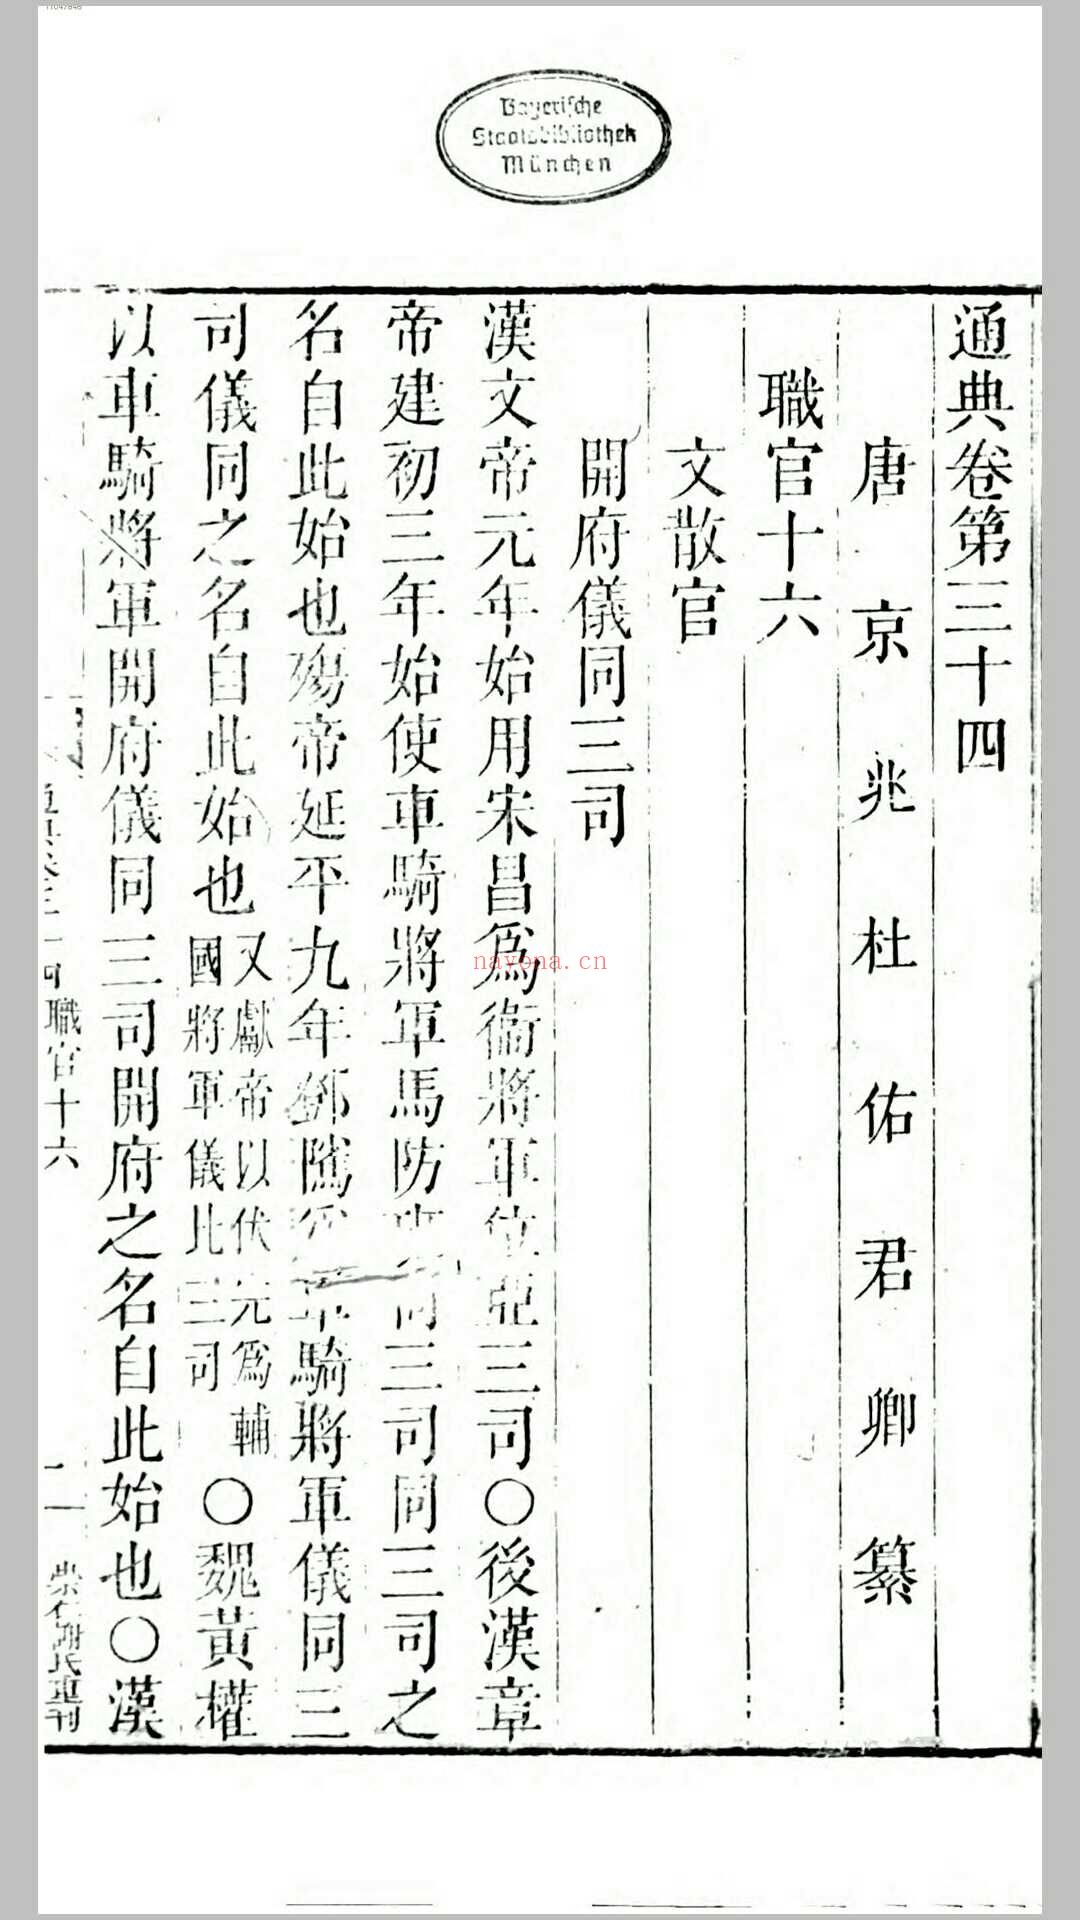 11047848
Bayerische
Staatsbibliothek
München
通典卷第三十四
唐京兆杜佑君卿纂
職官十六
文散官
開府儀同三司
漢文帝元年始用宋昌爲衞將軍位亞三司○後漢章
帝建初三年始使車騎將軍馬防班同三司同三司之
名自此始也殤帝延平九年鄧隲爲車騎將軍儀同三
司儀同之名自此始也又獻帝以伏完爲輔
國將軍儀比三司○魏黃權
以車騎將軍開府儀同三司開府之名自此始也○漢
職官十六
nayona.cn